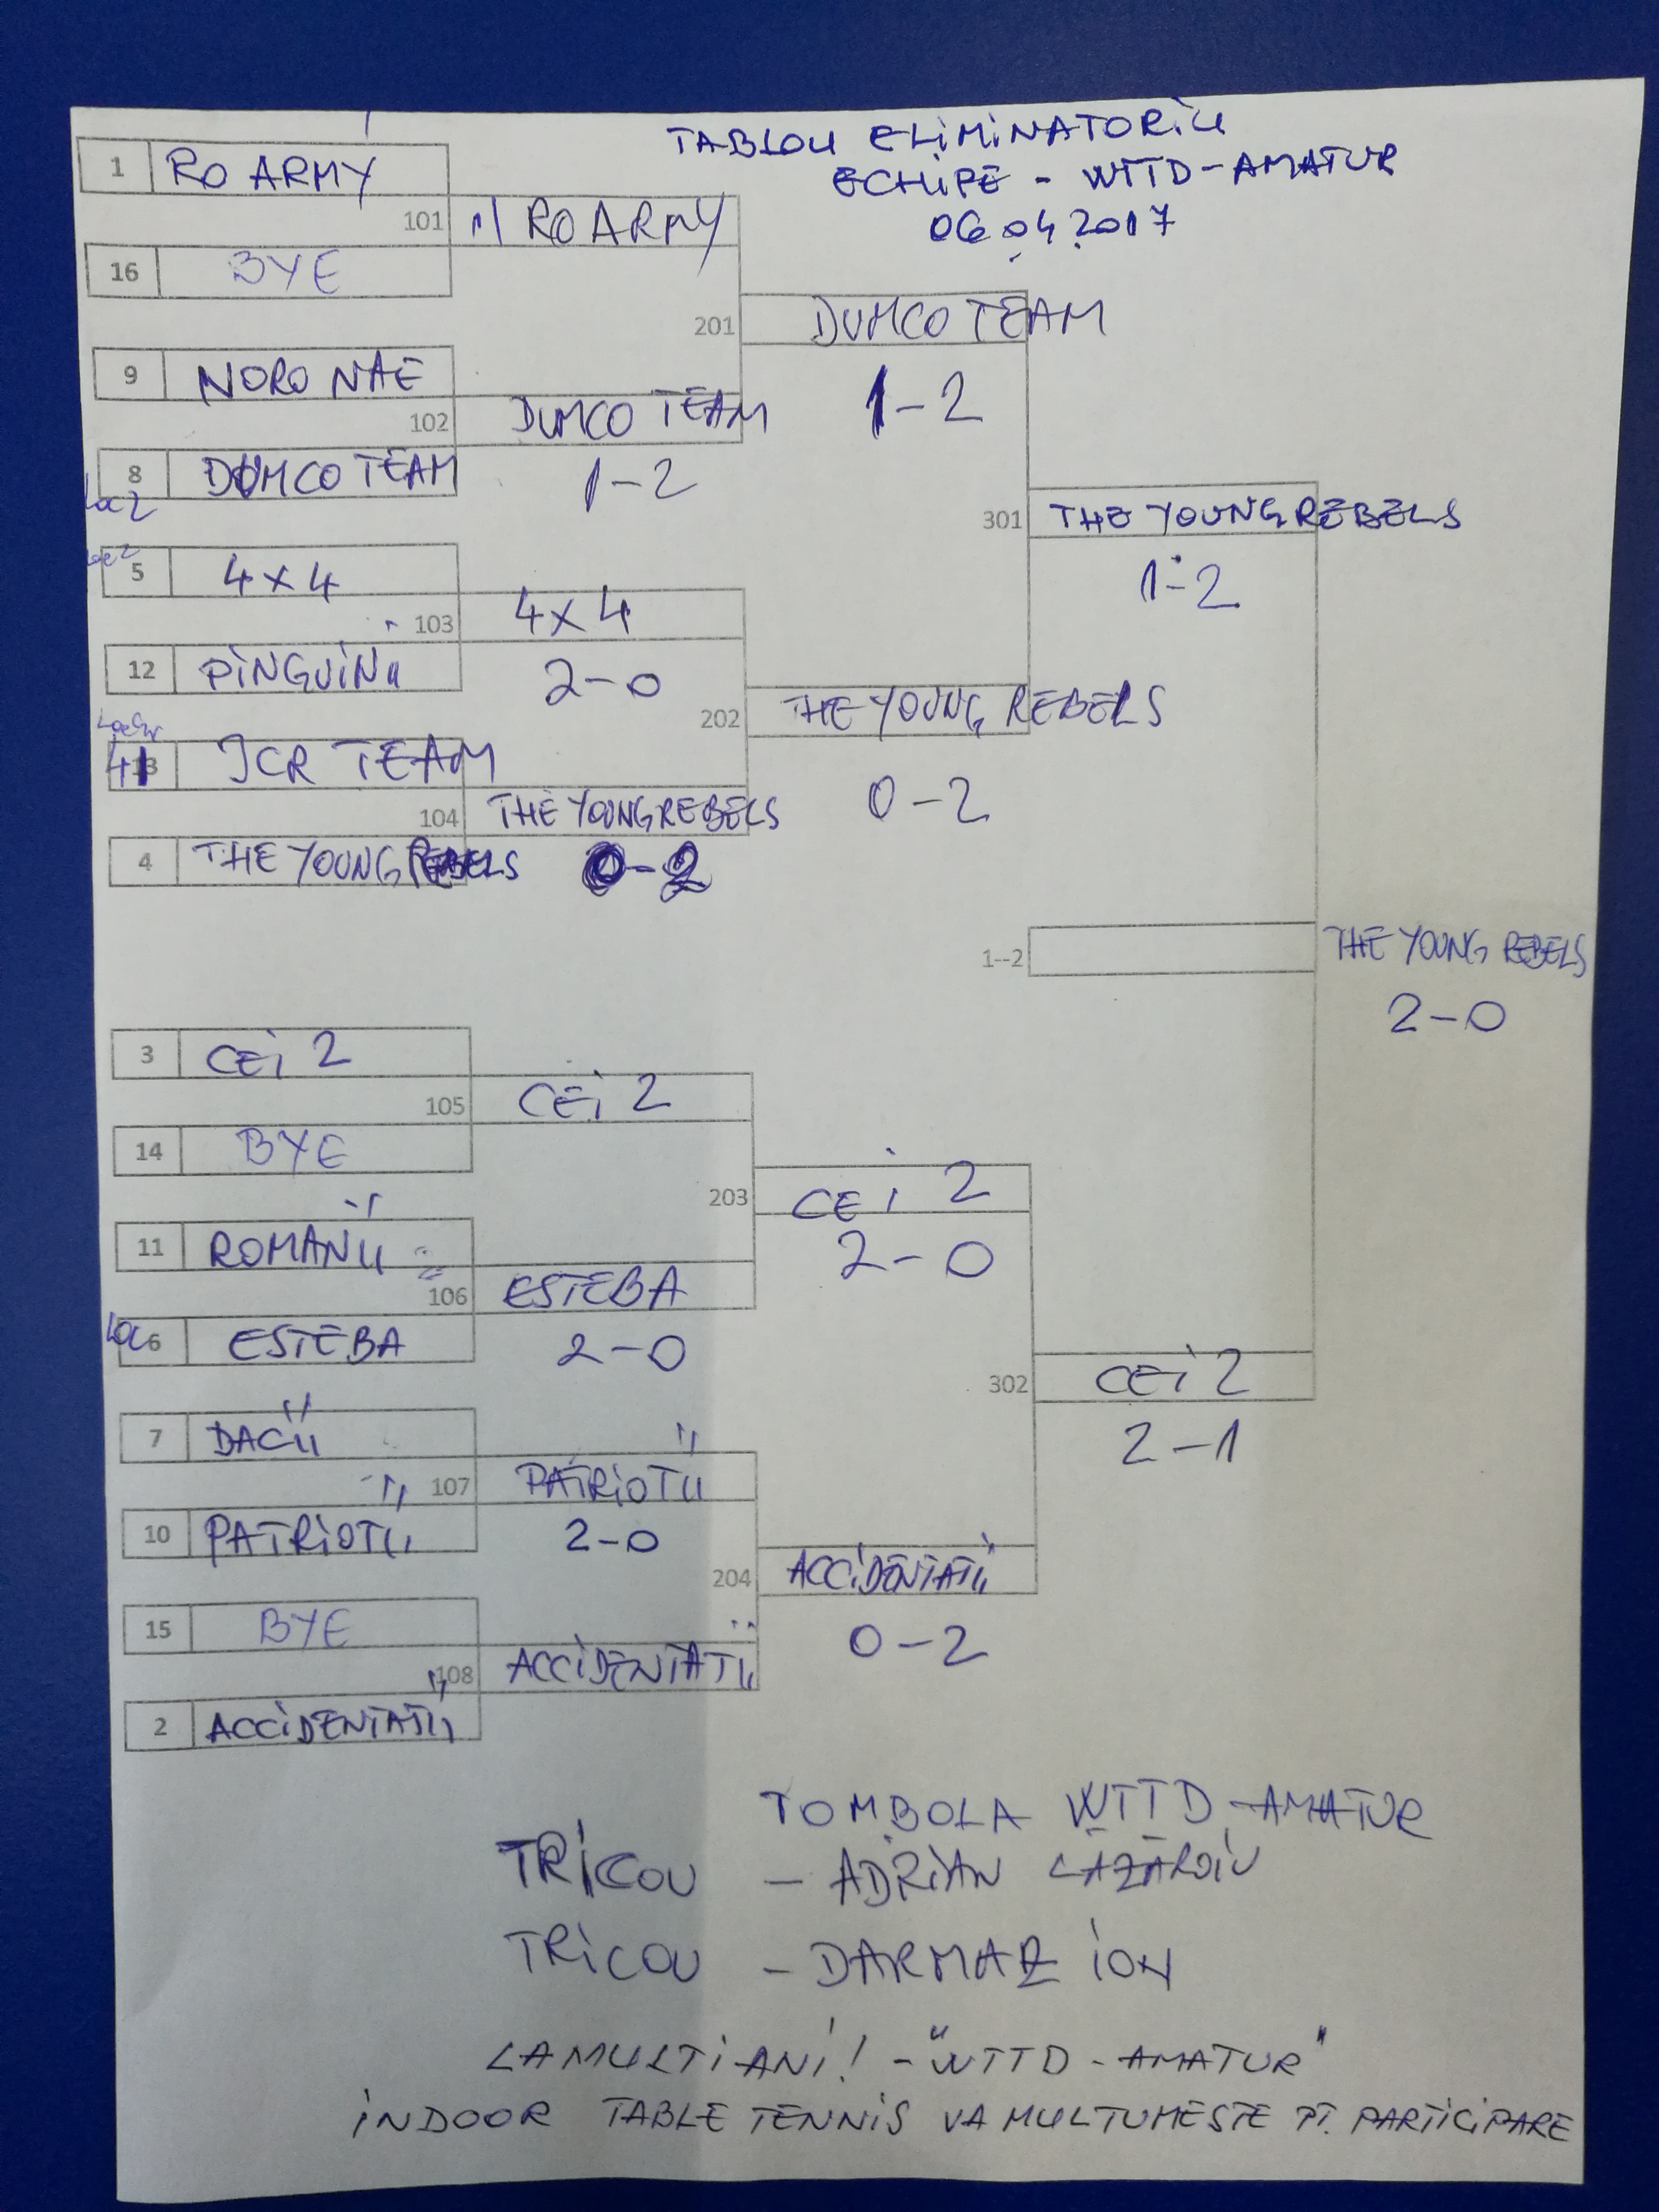 TABLOU ELIMINATORIU
ECHIPE - WTTD-AMATUR
06.04.2017
1 RO ARMY
101 RO ARMY
16 BYE
201 DUMCO TEAM
9 NORO NAE
1-2
102 DUMCO TEAM
8 DUMCO TEAM
1-2
301 THE YOUNG REBELS
1-2
5 4x4
103 4x4
12 PINGUINII
2-0
202 THE YOUNG REBELS
JCR TEAM
0-2
104 THE YOUNG REBELS
4 THE YOUNG REBELS
0-2
1--2
THE YOUNG REBELS
2-0
3 CEI 2
105 CEI 2
14 BYE
203 CEI 2
11 ROMANII
2-0
106 ESTEBA
6 ESTEBA
2-0
302 CEI 2
2-1
7 DACII
107 PATRIOTII
10 PATRIOTII
2-0
204 ACCIDENTATII
15 BYE
0-2
108 ACCIDENTATII
2 ACCIDENTATII
TOMBOLA WTTD-AMATUR
TRICOU - ADRIAN LAZAROIU
TRICOU - DARMAZ ION
LA MULTI ANI! - "WTTD-AMATUR"
INDOOR TABLE TENNIS VA MULTUMESTE PT. PARTICIPARE